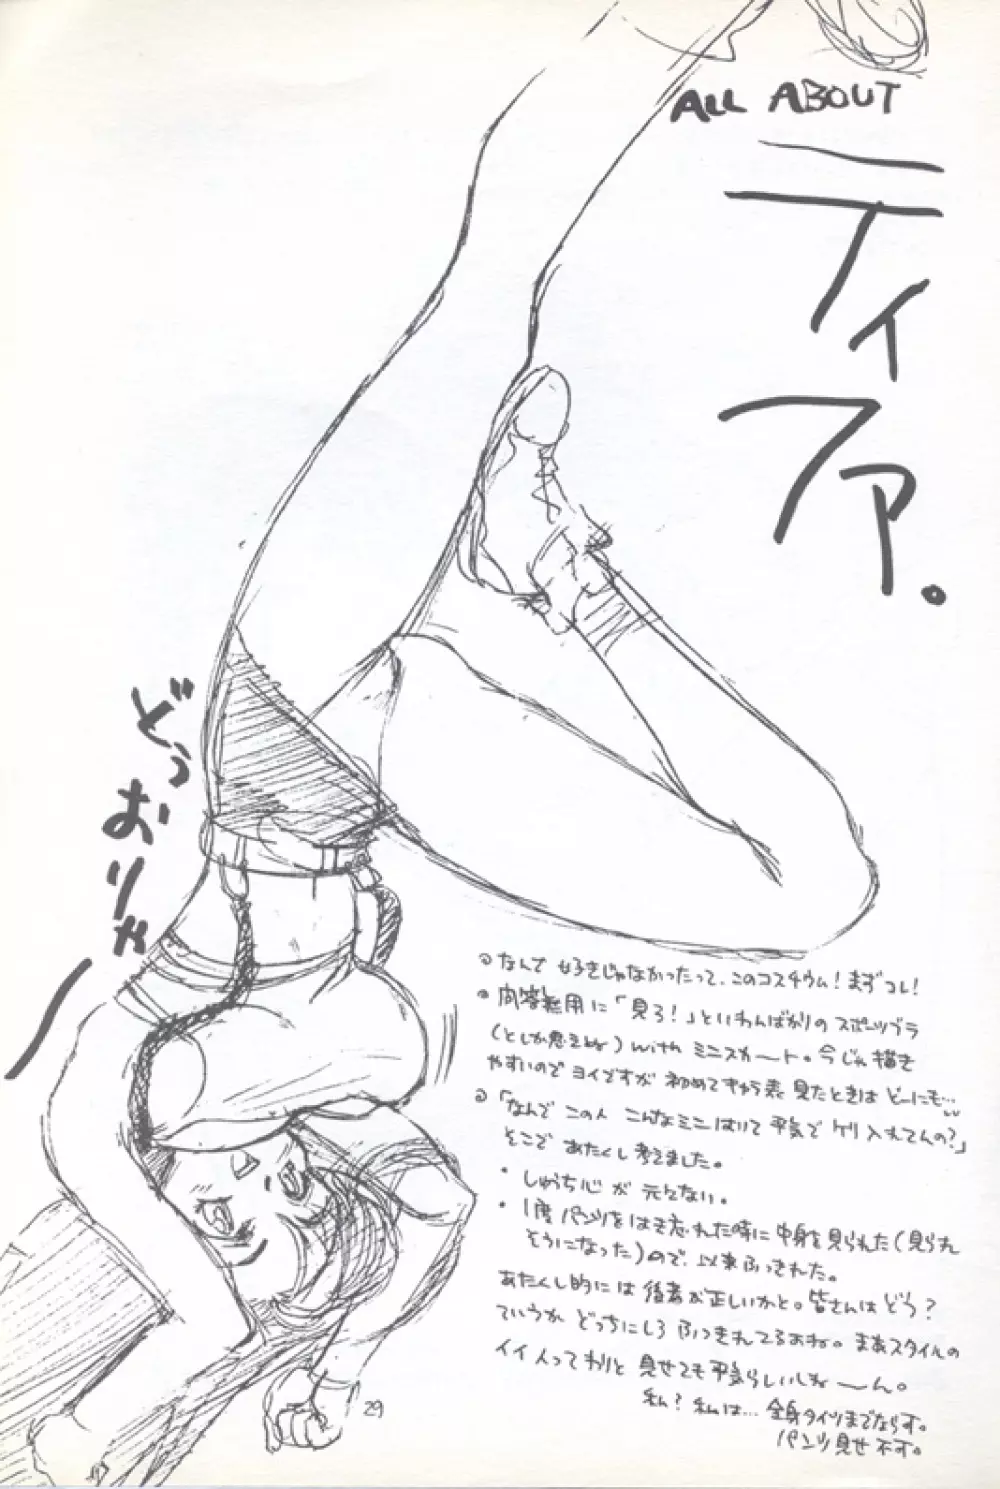 ALL ABOUT
ティファ。
どぅおりゃー
なんで 好きじゃなかったって、このコスチウム! まずコレ!
内容無用に「見ろ!」といわんばかりのスポーツブラ
(としか思えぬ) with ミニスカート。今じゃ描き
やすいので ヨイですが 初めてキャラ表 見たときは どーにも…
「なんで この人 こんなミニはいて 平気で ケリ入れてんの?」
そこで あたくし考えました。
・しゅうち心が 元々ない。
・1度 パンツを はき忘れた時に 中身を見られた(見られ
そうになった)ので、以来ふっきれた。
あたくし的には 後者が正しいかと。皆さんは どう?
ていうか どっちにしろ ふっきれてるよね。まあスタイルの
イイ人って わりと 見せても平気らしいしねーーん。
私? 私は… 全身タイツまでならす。
パンツ見せ 不す。
29